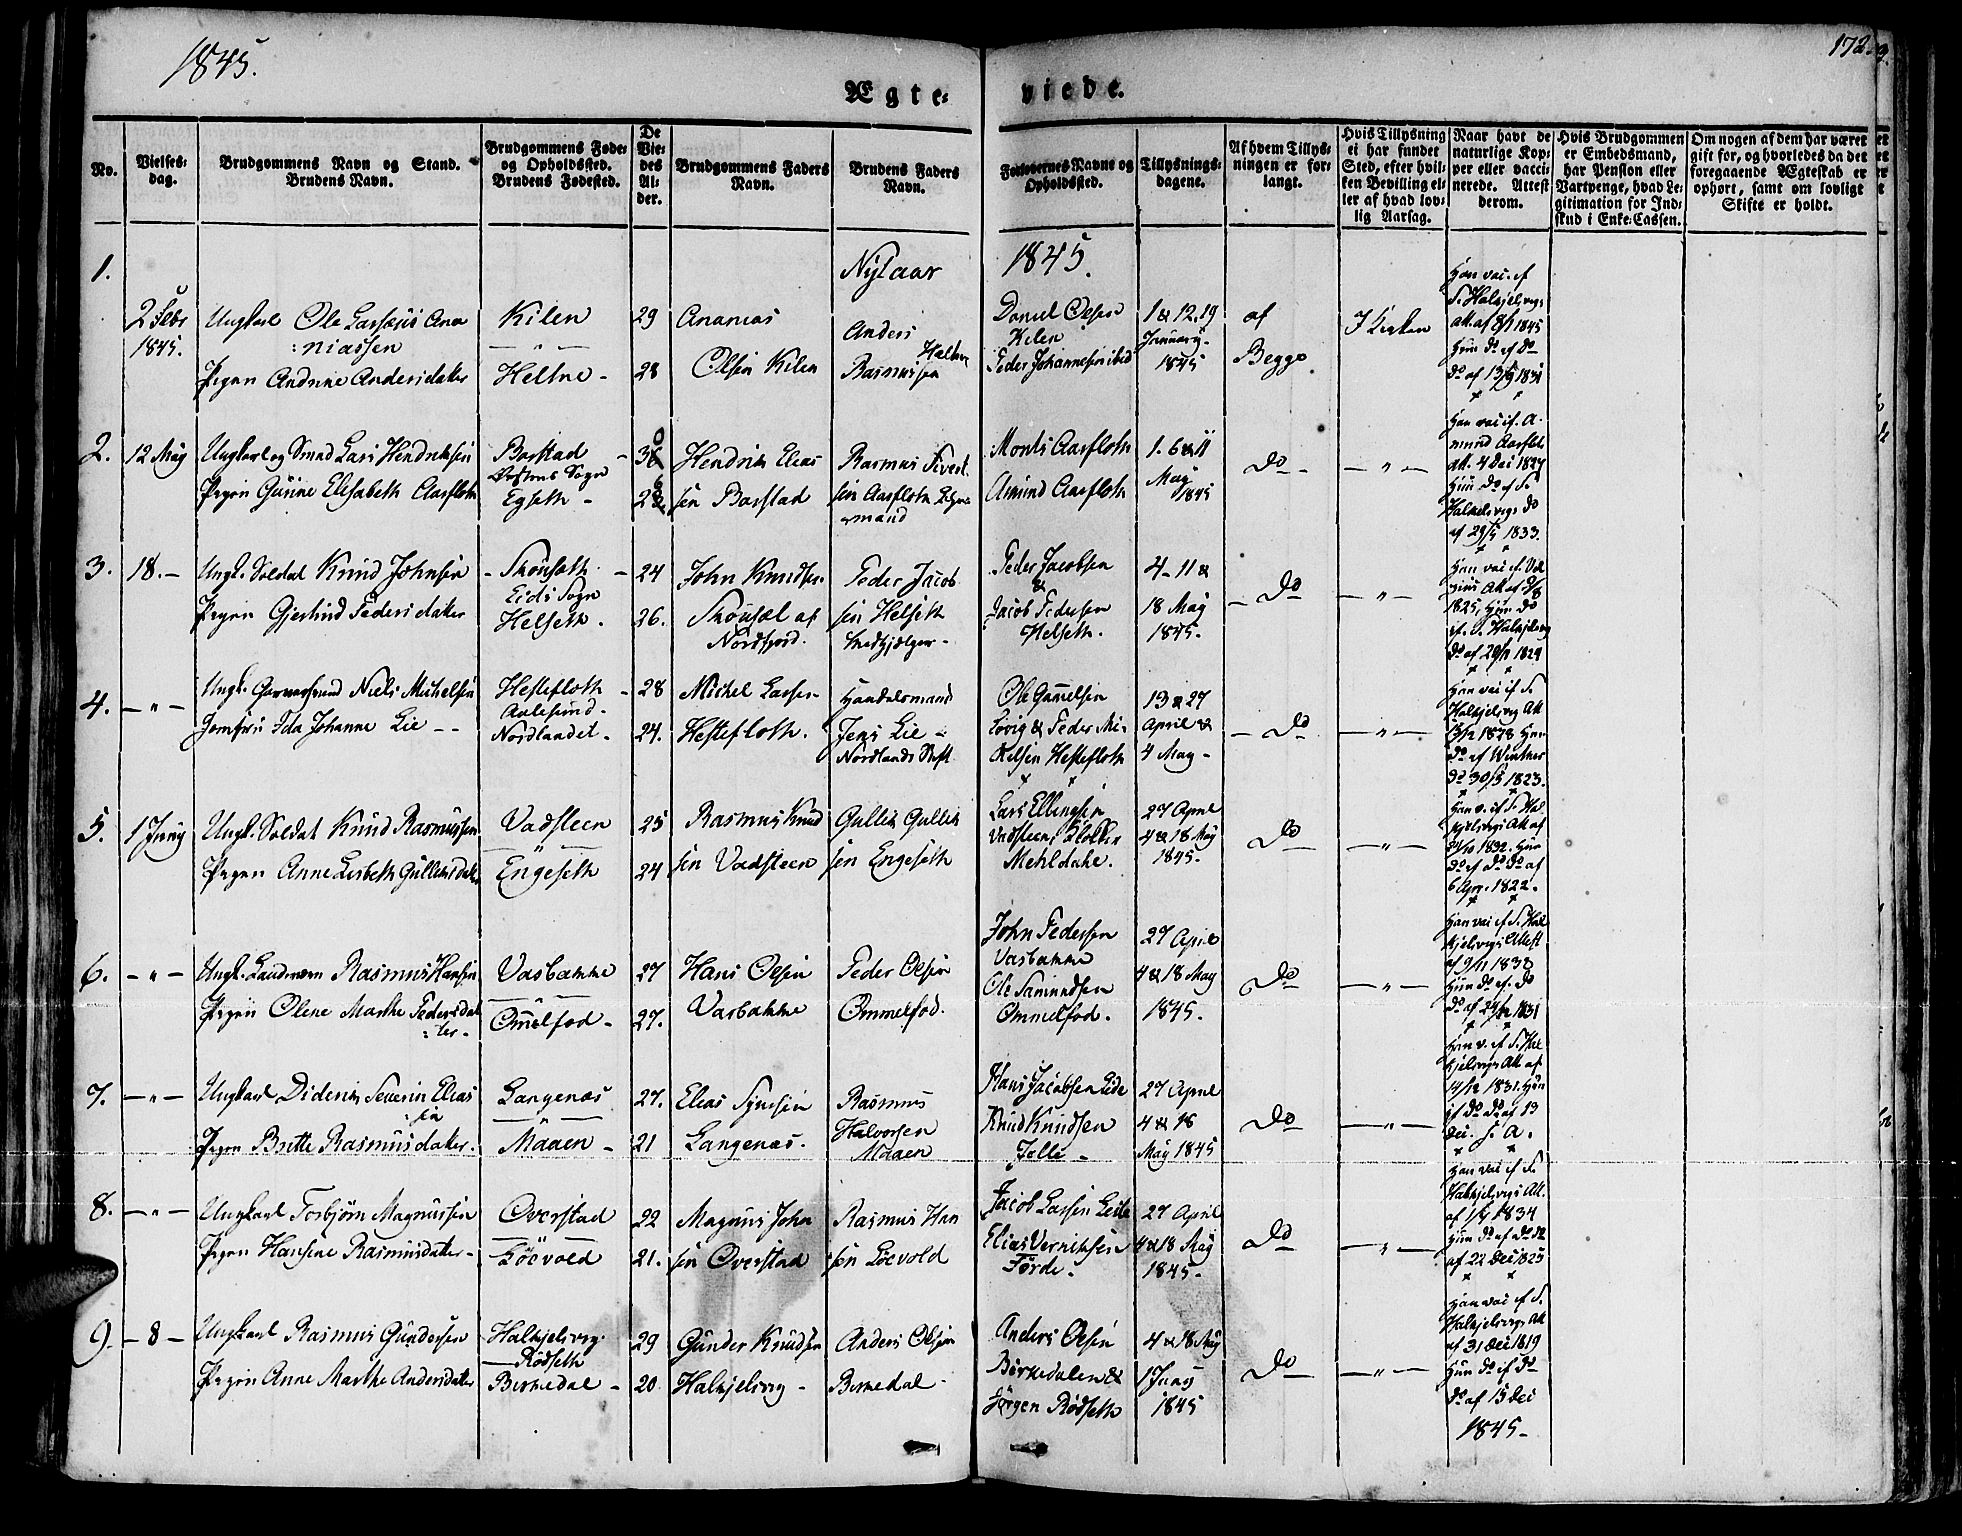 1845.
172
Ægte-
viede.
No.
Vielses-
dag.
Brudgommens Navn og Stand.
Brudens Navn.
Brudgommens Føde-
og Opholdssted.
Brudens Fødested.
De
Vie-
des
Al-
der.
Brudgommens Faders
Navn.
Brudens Faders
Navn.
Forlovernes Navne og
Opholdssted.
Tillysnings-
dagene.
Af hvem Tillys-
ningen er for-
langt.
Hvis Tillysning
ei har fundet
Sted, efter hvil-
ken Bevilling el-
ler af hvad lov-
lig Aarsag.
Naar havt de
naturlige Kop-
per eller vacci-
nerede. Attest
derom.
Hvis Brudgommen
er Embedsmand,
har Pension eller
Vartpenge, hvad Le-
gitimation for Ind-
skud i Enke-Cassen.
Om nogen af dem har været
gift før, og hvorledes da det
foregaaende Ægteskab er
ophørt, samt om lovligt
Skifte er holdt.
Nytaar 1845.
1.
2 Febr
1845.
Ungkarl Ole Lassæus Ana
niassen
Pigen Andrine Andersdater
Kilen
Heltne -
29
28
Ananias
Olsen Kilen
Anders Heltne
Rasmussen
Daniel Olsen
Kilen
Peder Johannesen ibid
1 & 12. 19
January
1845
af
Begge
I Kirken
Han vac. af
S. Halkjelsvigs
Att. af 1845
Hun do af do
do af 13/9 1831
2.
12 May
Ungkarl og Smed Lars Hendriksen
Pigen Gurine Elisabeth Aarfloth
Barstad
Ørstens Sogn
Egseth -
30
26
Hendrik Elias
sen Barstad
Rasmus Sivert
sen Aarfloth
mand
Monts Aarfloth
Amund Aarfloth
1. 6 & 11
May
1845
Do -
- " -
Han vac. af A.
mund Aarfloth
Att. 4 Dec 1827
Hun do af S.
Halkjelsvigs do
af 29/5 1833.
3.
18. -
Ungk. Soldat Knud Johnsen
Pigen Gjertrud Pedersdater
Eids Sogn
Helseth.
24
26.
John Knudsen
af
Nordfjord.
Peder Jacob
sen Helseth
Medhjelper -
Peder Jacobsen
&
Jacob Pedersen
Helseth.
4 - 11 &
18 May
1845.
- Do
- " -
1825, Hun do
af S. Halkjelsvig
do af 1829
4.
- " -
Ungk. Niels Michelsen
Jomfru Ida Johanne Lie - -
Hestefloth
Aalesund -
Nordlandet -
28
24.
Michel Lasse-
Hestefloth.
Handelsmand
Jens Lie -
Nordlands Stift
Ole Gunnelsen
Lovig & Peder Mi-
kelsen Hestefloth
13 & 27
April &
4 May -
- Do
- " -
Han vac af S.
Halkjelsvig Att
Hun
do af Winther
do 30/5 1823.
5.
1 Juny
Ungk. Soldat Knud Rasmussen
Pigen Anne Lisbeth Gulliksdater
Vadsteen
Engeseth
25
24
Rasmus Knud
sen Vadsteen
Gullik Gullik
sen Engeseth
Lars Ellingsen
Vadsteen, Klokker
Mehldahl.
27 April
4 & 18 May
1845.
Do
- " -
Han v. af S. Hal
kjelsvigs Att af
1832. Hun
do af do do af
6 Apr. 1822.
6.
- " -
Ungk. Landværn Rasmus Hansen
Pigen Olene Marthe Pedersdat
ter -
Vasbakke
Ommelfod -
27
27.
Hans Olsen
Vasbakke
Peder Olsen
Ommelfod.
John Pedersen
Vasbakke
Ole Samundsen
Ommelfod.
27 April
4 & 18 May
1845.
Do
- " -
Han vac af S. Hal
kjelsvigs Attest
af 9/11 1833
Hun do af do
do af 24/12 1831
7.
- " -
Ungkarl Diderik Severin Elias
sen
Pigen Britte Rasmusdater.
Langenæs
Maaen -
27.
21
Elias Synesen
Langenæs.
Rasmus
Halvorsen
Maaen
Hans Jacobsen Eide
Knud Knudsen
Folle -
27 April
4 & 18
May 1845
Do
- " -
Han v. af S. Hal
kjelsvigs Att af
14/12 1831. Hun
af do do af 13
Dec. s. A.
8.
- " -
Ungkarl Torbjørn Magnussen
Pigen Hansine Rasmusdater -
Overstad
Løevold
22
21.
Magnus John
sen Overstad
Rasmus Han
sen Løevold
Jacob Larsen Leite
Elias Verniksen
Førde.
27 April
4 & 18 May
1845 -
Do
- " -
Han vac af S.
Halkjelsvigs Att.
af 1834
Hun do af do do
af 22 Dec 1825
9.
- 8 -
Ungkarl Rasmus Gundersen
Pigen Anne Marthe Andersdater
Halkjelsvig.
- Rødseth
Birkedal -
29
20
Gunder Knudsen
Halkjelsvig -
Anders Olsen
Birkedal -
Anders Olsen
Birkedalen &
Jørgen Rødseth
4 & 18 May
1 Juny
1845
Do
- " -
Han vac af S.
Halkjelsvigs Att
af 31 Dec 1819
Hun do af do
do af 15 Dec
1845 -